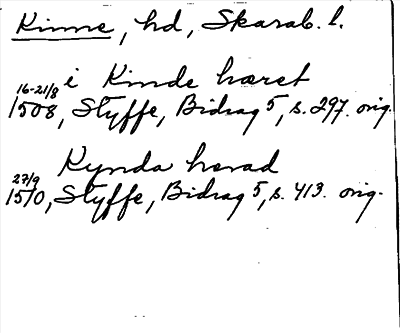 Kinne, hd, Skarab. l.
i Kinde hæret
16-21/8 1508, Styffe, Bidrag 5, s. 297. orig.
Kynda hærad
27/9 1510, Styffe, Bidrag 5, s. 413. orig.